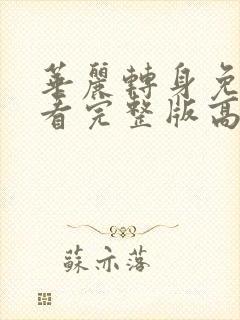 華麗轉身免
看完整版高
蘇亦落